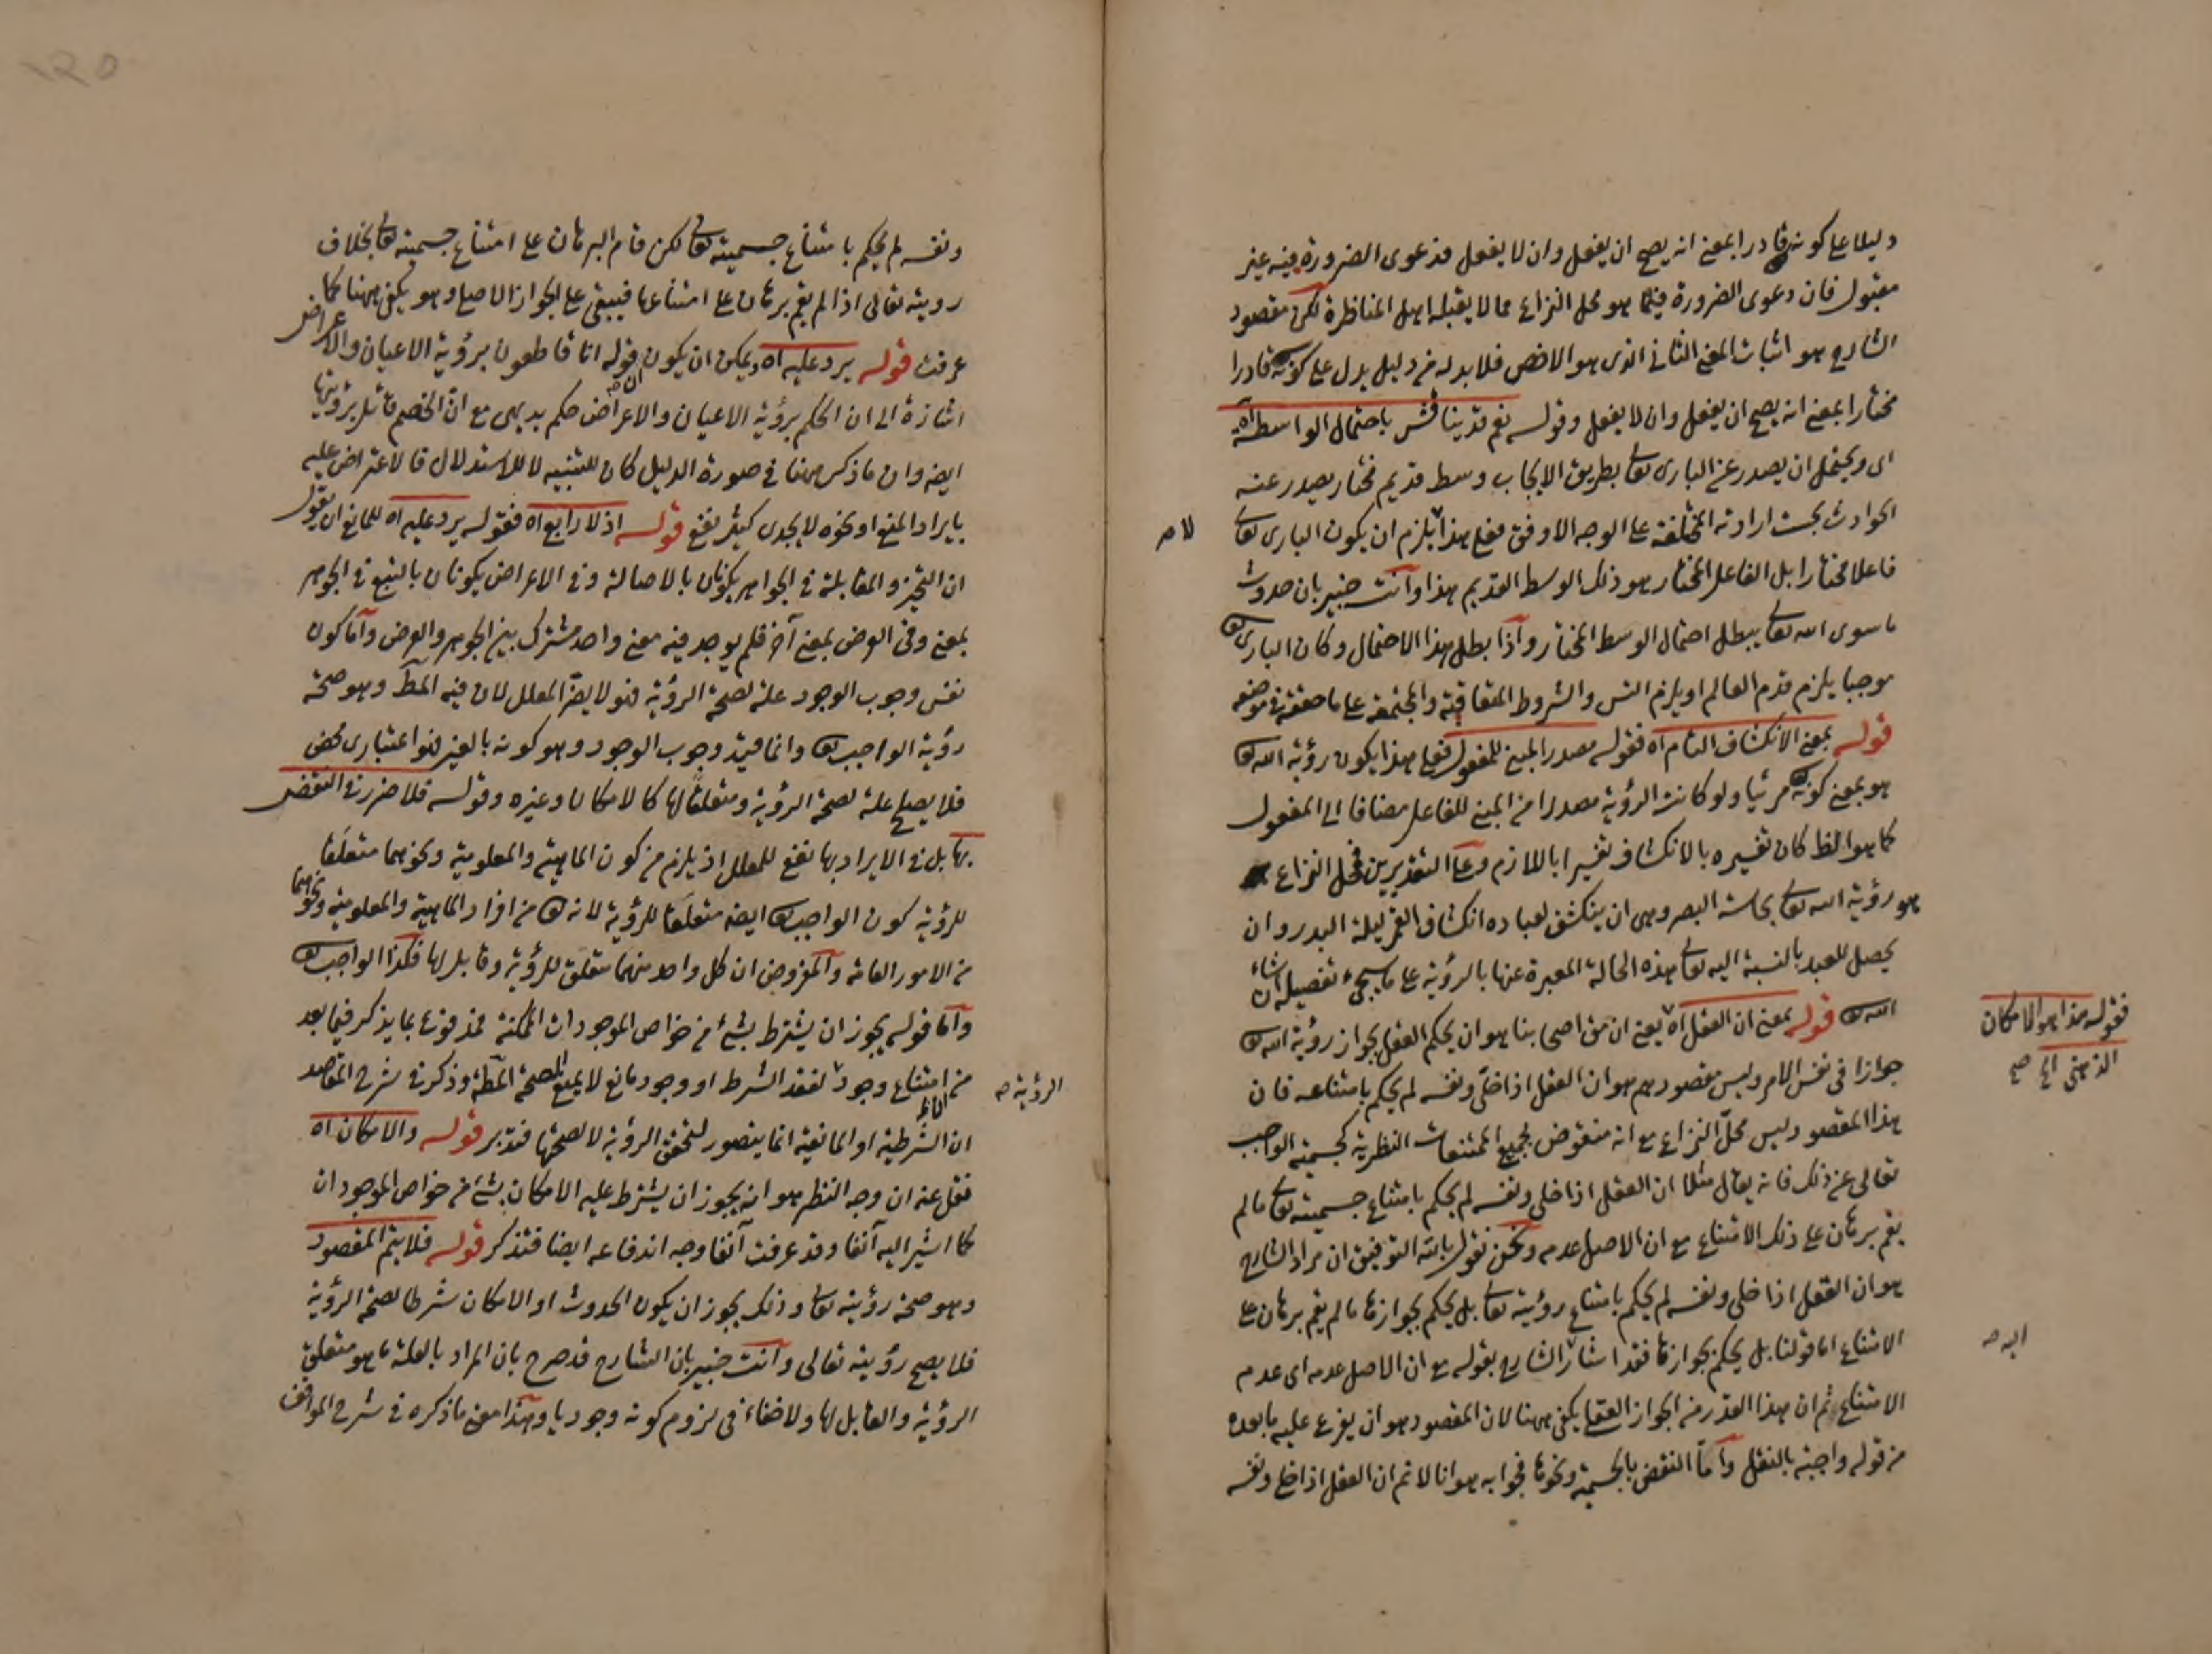 دليلا على كونه قادرا بمعنى انه يصح ان يفعل وان لا يفعل فدعوى الضرورة فيه غير
مقبول فان دعوى الضرورة فيما هو محل النزاع مما لا يقبله اهل المناظرة لكن مقصود
الشارح هو اثبات المعنى الثانى الذى هو الاخص فلا بد له من دليل يدل على كونه قادرا
مختارا بمعنى انه يصح ان يفعل وان لا يفعل وقوله نعم قد يناقش باحتمال الواسطة اه
اى ويحتمل ان يصدر عن البارى تعالى بطريق الايجاب وسط قديم مختار يصدر عنه
الحوادث بحسب ارادته المختلفة على الوجه الاوفق فعلى هذا يلزم ان يكون البارى تعالى
لا صح
فاعلا مختارا بل الفاعل المختار هو ذلك الوسط القديم هذا وانت خبير بان حدوث
ما سوى الله تعالى يبطل احتمال الوسط المختار واذا بطل هذا الاحتمال وكان البارى تع
موجبا يلزم قدم العالم او يلزم التس والشروط المتعاقبة والمجتمعة على ما حققه فى موضعه
قوله بمعنى الانكشاف التام اه فقوله مصدر المبنى للمفعول فعلى هذا يكون رؤية الله تع
هو بمعنى كونه تع مرئيا ولو كانت الرؤية مصدرا من المبنى للفاعل مضافا الى المفعول
كما هو الظ كان تفسيره بالانكشاف تفسيرا باللازم وعلى التقديرين فمحل النزاع
هو رؤية الله تعالى بحاسة البصر وهى ان ينكشف لعباده انكشاف القمر ليلة البدر وان
يحصل للعبد بالنسبة اليه تعالى هذه الحالة المعبرة عنها بالرؤية على ما سيجىء تفصيله ان شاء
الله تع قوله بمعنى ان العقل اه يعنى ان من اصحابنا هو ان يحكم العقل بجواز رؤية الله تع
فقوله هذا هو الامكان
الذهنى الخ صح
جوازا فى نفس الامر وليس مقصودهم هو ان العقل اذا خلى ونفسه لم يحكم بامتناعه فان
هذا المقصود ليس محل النزاع مع انه منقوض بجميع الممتنعات النظرية كجسمية الواجب
تعالى عن ذلك فانه يقال مثلا ان العقل اذا خلى ونفسه لم يحكم بامتناع جسميته تعالى ما لم
يقم برهان على ذلك الامتناع مع ان الاصل عدمه ونحن نقول بالله التوفيق ان مراد الشارح
هو ان العقل اذا خلى ونفسه لم يحكم بامتناع رؤيته تعالى بل يحكم بجوازها ما لم يقم برهان على
الامتناع اما قولنا بل يحكم بجوازها فقد اشار الشارح بقوله مع ان الاصل عدمه اى عدم
اليه صح
الامتناع ثم ان هذا القدر من الجواز العقلى يكفى ههنا لان المقصود هو ان يفرع عليه ما بعده
من قوله واجبة بالنقل واما النقض بالجسمية ونحوها فجوابه هو انا لا نم ان العقل اذا خلى ونفسه
ونفسه لم يحكم بامتناع جسميته تعالى لكن قام البرهان على امتناع جسميته تعالى بخلاف
رويته تعالى اذا لم يقم برهان على امتناعها فيبقى على الجواز الاصلى وهو يكفى ههنا كما
عرفت قوله يرد عليه اه ويمكن ان يكون قوله انا قاطعون برؤية الاعيان والاعراض
اشارة الى ان الحكم برؤية الاعيان والاعراض حكم بديهى مع ان الخصم قائل برؤيتها
ايضه وان ما ذكر ههنا فى صورة الدليل كان للتنبيه لا للاستدلال فالاعتراض عليه
بايراد المنع او نحوه لا يجدى كثير نفع قوله اذ لا رابع اه فقوله يرد عليه اه للمانع ان يقول
ان التحيز والمقابلة فى الجواهر يكونان بالاصالة وفى الاعراض يكونان بالتبع فى الجوهر
بمعنى وفى العرض بمعنى آخر فلم يوجد فيه معنى واحد مشترك بين الجوهر والعرض واما كون
نفس وجوب الوجود علة لصحة الرؤية فهو لا يضر المعلل لان فيه المط وهو صحة
رؤية الواجب تع وانما قيد وجوب الوجود وهو كونه بالغير فهو اعتبارى محض
فلا يصلح علة لصحة الرؤية ومتعلقا لها كالامكان وغيره وقوله فلا ضرر فى النقض
بها بل فى الايراد بها نفع للمعلل اذ يلزم من كون الماهية والمعلومية ونحوهما متعلقا
للرؤية كون الواجب تع ايضه متعلقا للرؤية لانه تع من افراد الماهية والمعلومية ونحوهما
من الامور العامة والمفروض ان كل واحد منهما متعلق للرؤية وقابل لها فكذا الواجب تع
واما قوله يجوز ان يشترط بشئ من خواص الموجودات الممكنة فمدفوع بما يذكر فيما بعد
من امتناع وجود لفقد الشرط او وجود مانع لا يمنع الصحة المط وذكر فى شرح المقاصد
الرؤية صح
ان الشرطية او المانعية انما يتصور لتحقق الرؤية لا لصحتها فتدبر قوله والامكان اه
نقل عنه ان وجه النظر هو انه يجوز ان يشترط عليه الامكان بشئ من خواص الموجودات
كما اشير اليه آنفا وقد عرفت آنفا وجه اندفاعه ايضا فتذكر قوله فلا يتم المقصود
وهو صحة رؤيته تعالى وذلك يجوز ان يكون الحدوث او الامكان شرطا لصحة الرؤية
فلا يصح رؤيته تعالى وانت خبير بان الشارح قد صرح بان المراد بالعلة ما هو متعلق
الرؤية والقابل لها ولا خفاء فى لزوم كونه وجوديا وهذا معنى ما ذكره فى شرح المواقف